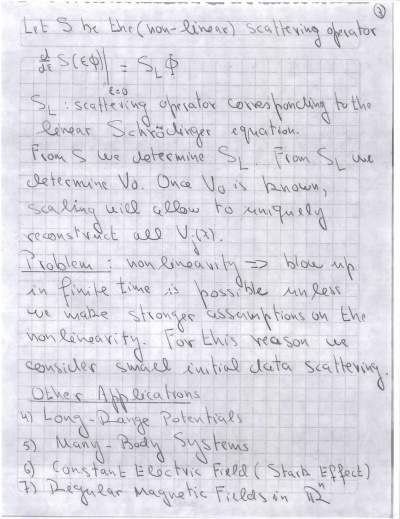 3
Let S be the (non-linear) scattering operator
d/dε S(εΦ)|ε=0 = S_L Φ
S_L : scattering operator corresponding to the
linear Schrödinger equation.
From S we determine S_L. From S_L we
determine V0. Once V0 is known,
scaling will allow to uniquely
reconstruct all Vj(x).
Problem : nonlinearity => blow up
in finite time is possible unless
we make stronger assumptions on the
nonlinearity. For this reason we
consider small initial data scattering.
Other Applications
4) Long-Range Potentials
5) Many-Body Systems
6) Constant Electric Field (Stark Effect)
7) Regular Magnetic Fields in ℝⁿ